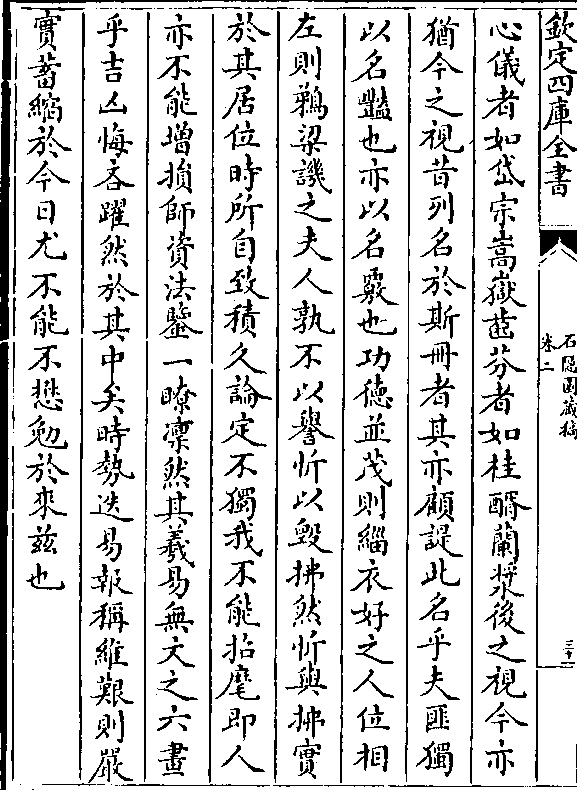 欽定四庫全書
石隱園藏稿
卷二
三十一
心儀者如岱宗嵩嶽齒芬者如桂醑蘭漿後之視今亦
猶今之視昔列名於斯冊者其亦顧諟此名乎夫匪獨
以名豔也亦以名覈也功德並茂則緇衣好之人位相
左則鵜梁譏之夫人孰不以譽忻以毀拂然忻與拂實
於其居位時所自致積久論定不獨我不能招麾即人
亦不能增損師資法鑒一瞭凜然其羲易無文之六畫
乎吉凶悔吝躍然於其中矣時勢迭易報稱維艱則嚴
實蓄縮於今日尤不能不懋勉於來茲也